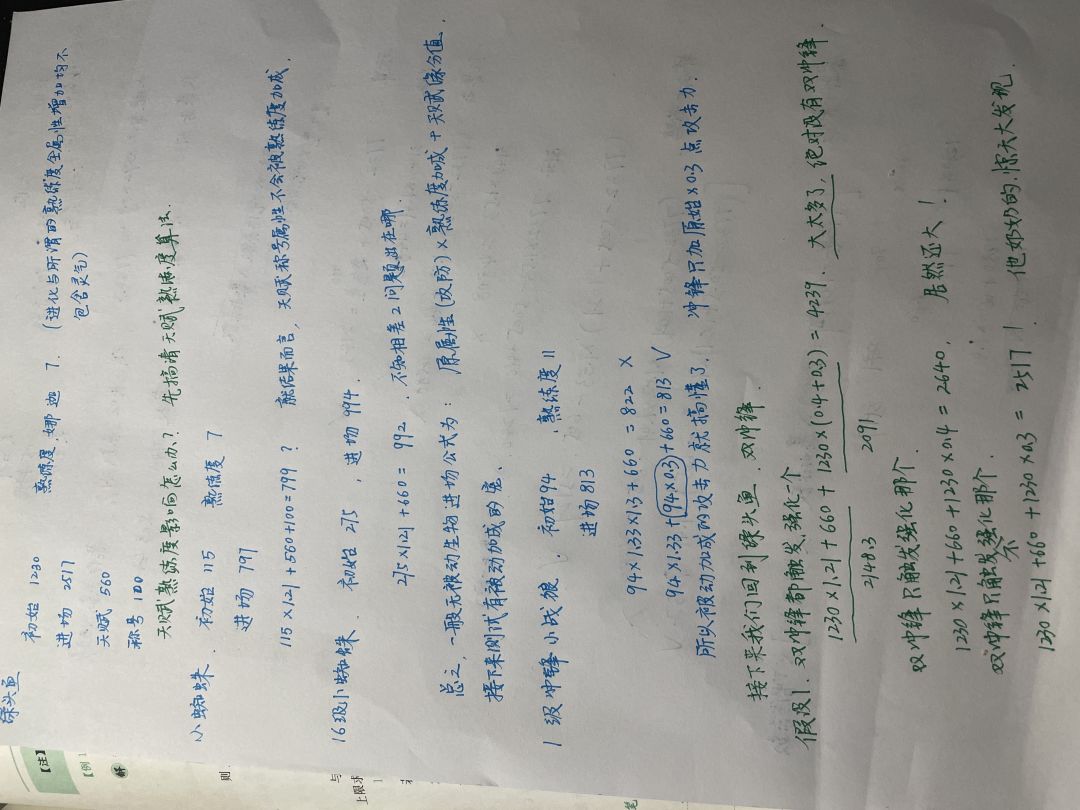 馃头鱼
初始 1230 熟练度 娜迦 7. (进化与所谓的熟练度全属性增加均不
包含灵气)
进场 2517
天赋 560
称号 100
天赋熟练度影响怎么办? 先搞清天赋熟练度算法.
小蜘蛛. 初始 115 熟练度 7
进场 797
115×1.21+560+100=799? 就结果而言, 天赋称号属性不会被熟练度加成.
16级小蜘蛛. 初始 275, 进场 994.
275×1.21+660=992. 不知相差2问题出在哪.
总之, 一般无被动生物进场公式为: 原属性(攻防)×熟练度加成+天赋缘分值.
接下来测试有被动加成的宠.
1级冲锋小战狼. 初始94. 熟练度11
进场813
94×1.33×1.3+660=822 ×
94×1.33+94×0.3+660=813 √
所以被动加成的攻击力就搞懂了. 冲锋只加原始×0.3点攻击力.
接下来我们回到馃头鱼. 双冲锋
假设1. 双冲锋都触发, 强化一个
1230×1.21+660+1230×(0.4+0.3)=4239. 大太多了, 绝对没有双冲锋
2148.3 2091
双冲锋只触发强化那个.
1230×1.21+660+1230×0.4=2640, 居然还大!
双冲锋只触发不强化那个.
1230×1.21+660+1230×0.3=2517! 他奶奶的, 惊天大发现.
【注】
【例1
解
则
与
上限求
笔